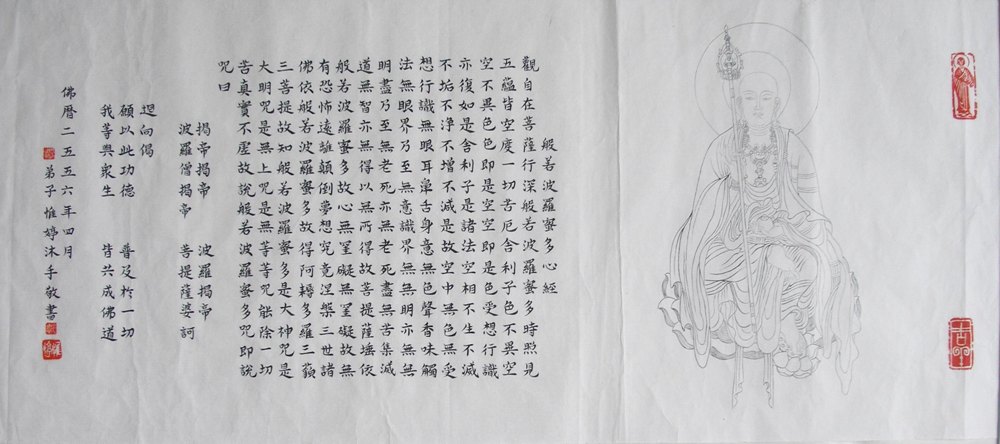 般若波羅蜜多心經
觀自在菩薩行深般若波羅蜜多時照見
五蘊皆空度一切苦厄舍利子色不異空
空不異色色即是空空即是色受想行識
亦復如是舍利子是諸法空相不生不滅
不垢不淨不增不減是故空中無色無受
想行識無眼耳鼻舌身意無色聲香味觸
法無眼界乃至無意識界無無明亦無無
明盡乃至無老死亦無老死盡無苦集滅
道無智亦無得以無所得故菩提薩埵依
般若波羅蜜多故心無罣礙無罣礙故無
有恐怖遠離顛倒夢想究竟涅槃三世諸
佛依般若波羅蜜多故得阿耨多羅三藐
三菩提故知般若波羅蜜多是大神咒是
大明咒是無上咒是無等等咒能除一切
苦真實不虛故說般若波羅蜜多咒即說
咒曰
揭帝揭帝 波羅揭帝
波羅僧揭帝 菩提薩婆訶
迴向偈
願以此功德 普及於一切
我等與眾生 皆共成佛道
佛曆二五五六年四月
弟子惟婷沐手敬書